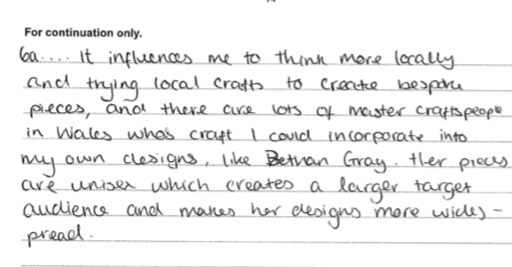 For continuation only.
6a.... It influences me to think more locally
and trying local crafts to create bespoke
pieces, and there are lots of master craftspeople
in Wales who's craft I could incorporate into
my own designs, like Bethan Gray. Her pieces
are unisex which creates a larger target
audience and makes her designs more wides-
pread.